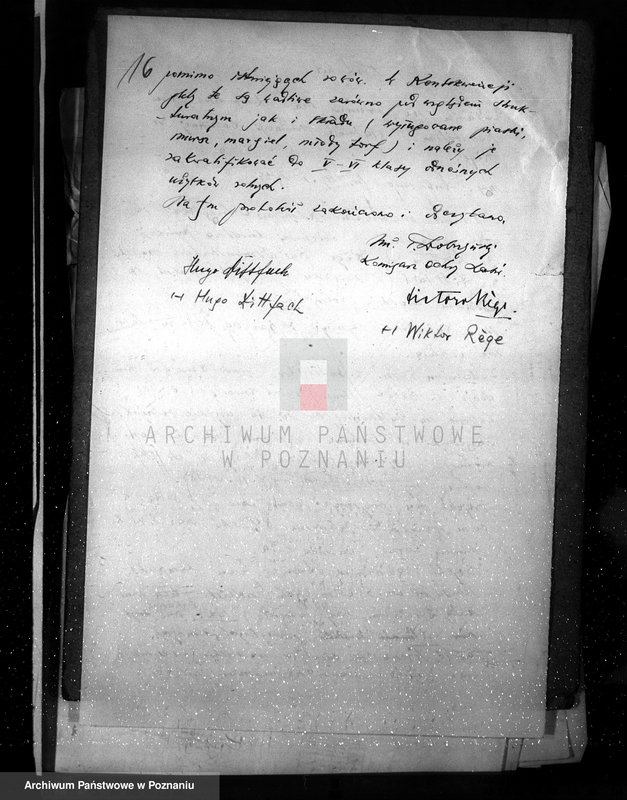 16 pomimo istniejących rowów. W konsekwencji
gleby te są wadliwe zarówno pod względem struk-
-turalnym jak i składu (występowanie piaski,
mursz, margiel, młody torf) i należy je
zakwalifikować do V-VI klasy ornych
użytków rolnych.
Na tym protokół zakończono i odczytano.
inż. T. Dobrzyński
Komisarz Ochr. Lasów
Hugo Dittfach
Wiktor Rège
H Hugo Dittfach
H Wiktor Rège
ARCHIWUM PAŃSTWOWE
W POZNANIU
Archiwum Państwowe w Poznaniu